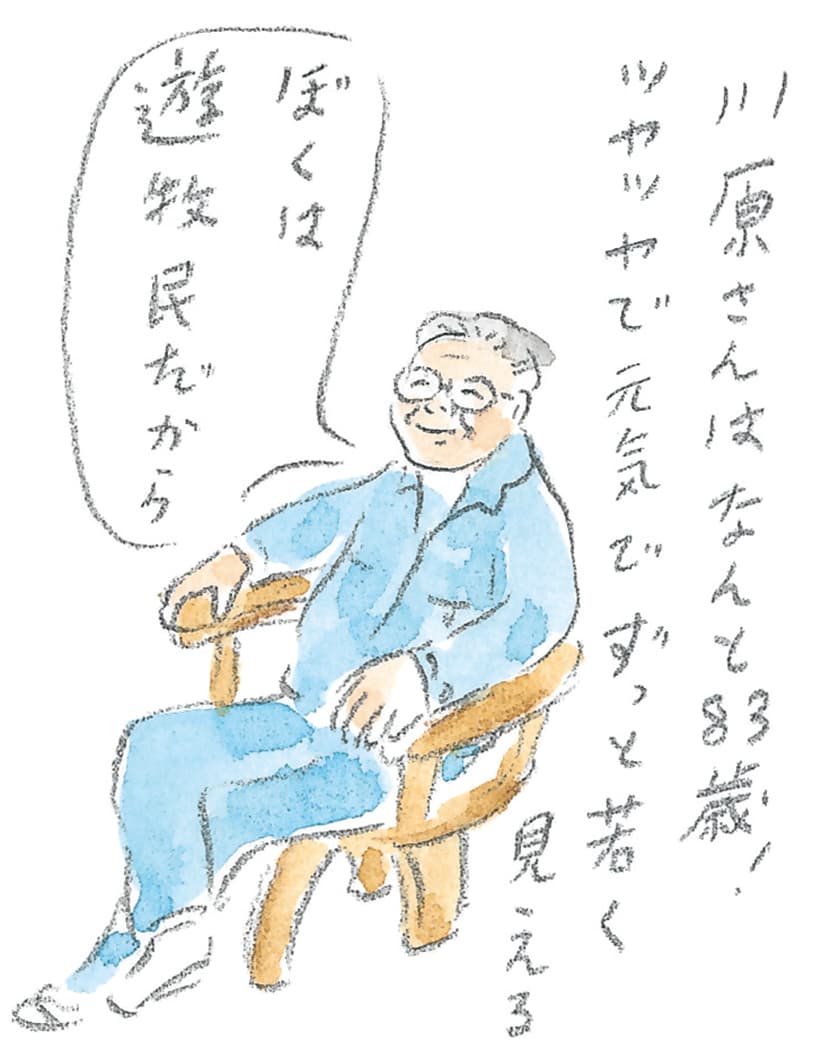 川原さんはなんと83歳!
ツヤツヤで元気でずっと若く
見える
ぼくは
遊牧民だから